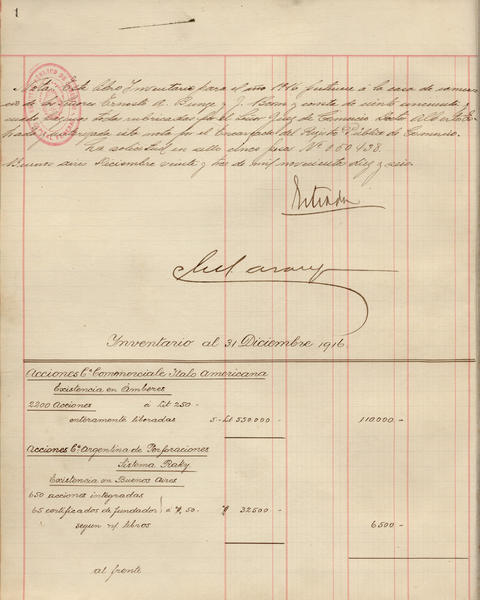 1
Nota: Este libro Inventario para el año 1916 pertenece á la casa de comer
cio de los Señores Ernesto A. Bunge y J. Born y consta de ciento cincuenta y
todas rubricadas por el Señor Juez de Comercio Doctor Alberto Es
esta nota por el Encargado del Rejistro Público de Comercio.
La solicitud en sello cinco pesos Nº 060438.
Buenos Aires Diciembre veinte y tres de mil novecientos diez y seis
Estrada
Inventario al 31 Diciembre 1916
Acciones Cª Commerciale Italo Americana
Existencia en Amberes
2200 Acciones á Lit 250-
enteramente liberadas 5- Lit 550.000- 110.000-
Acciones Cª Argentina de Perforaciones
Sistema Raky
Existencia en Buenos Aires
650 acciones integradas
65 certificados de fundador á $ 50- $ 32500-
segun n/ libros 6500-
al frente